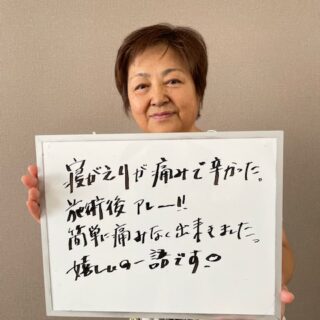 寝がえりが痛みで辛かった。
施術後アレー!!
簡単に痛みなく出来ました。
嬉しいの一語です。